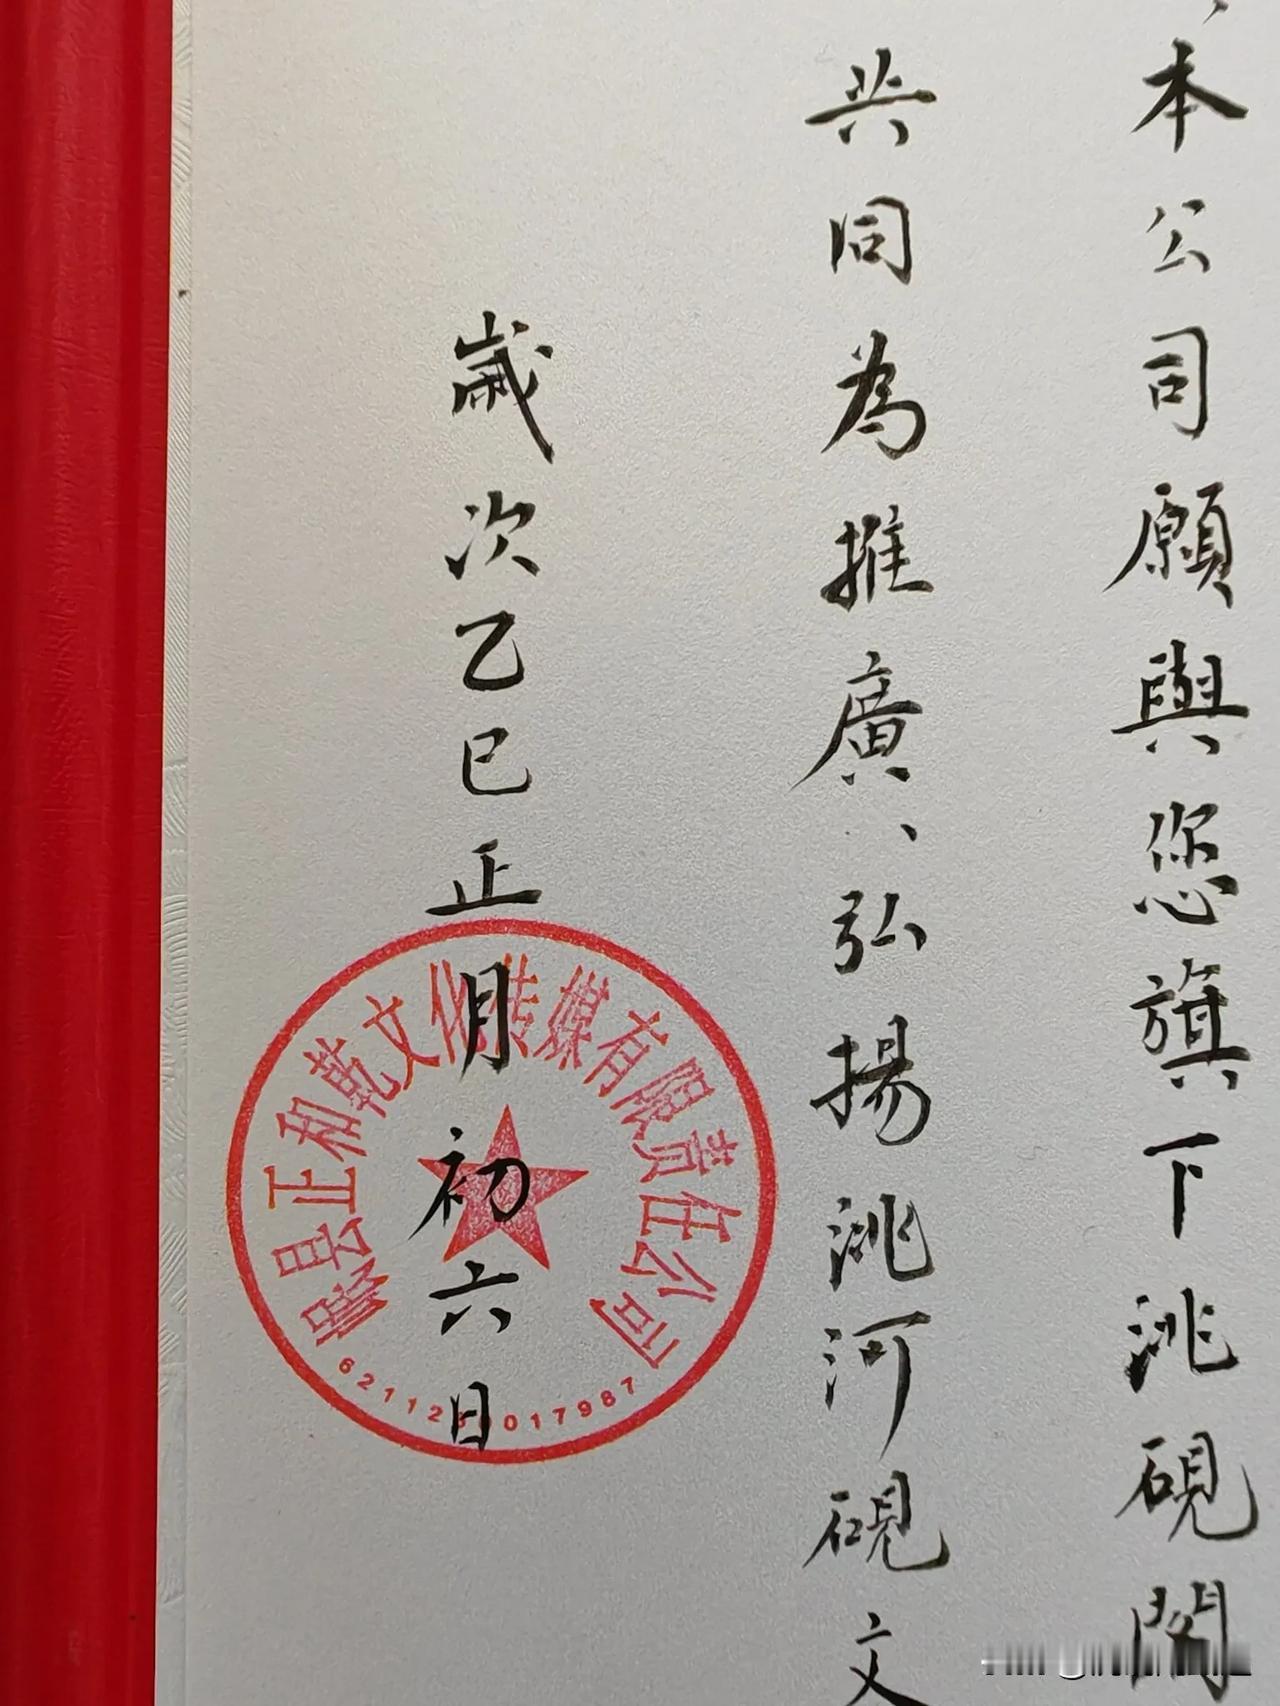 本公司願與您旗下洮硯閣
共同為推廣、弘揚洮河硯文
歲次乙巳正月初六日
县正和乾文化传媒有限责任公司